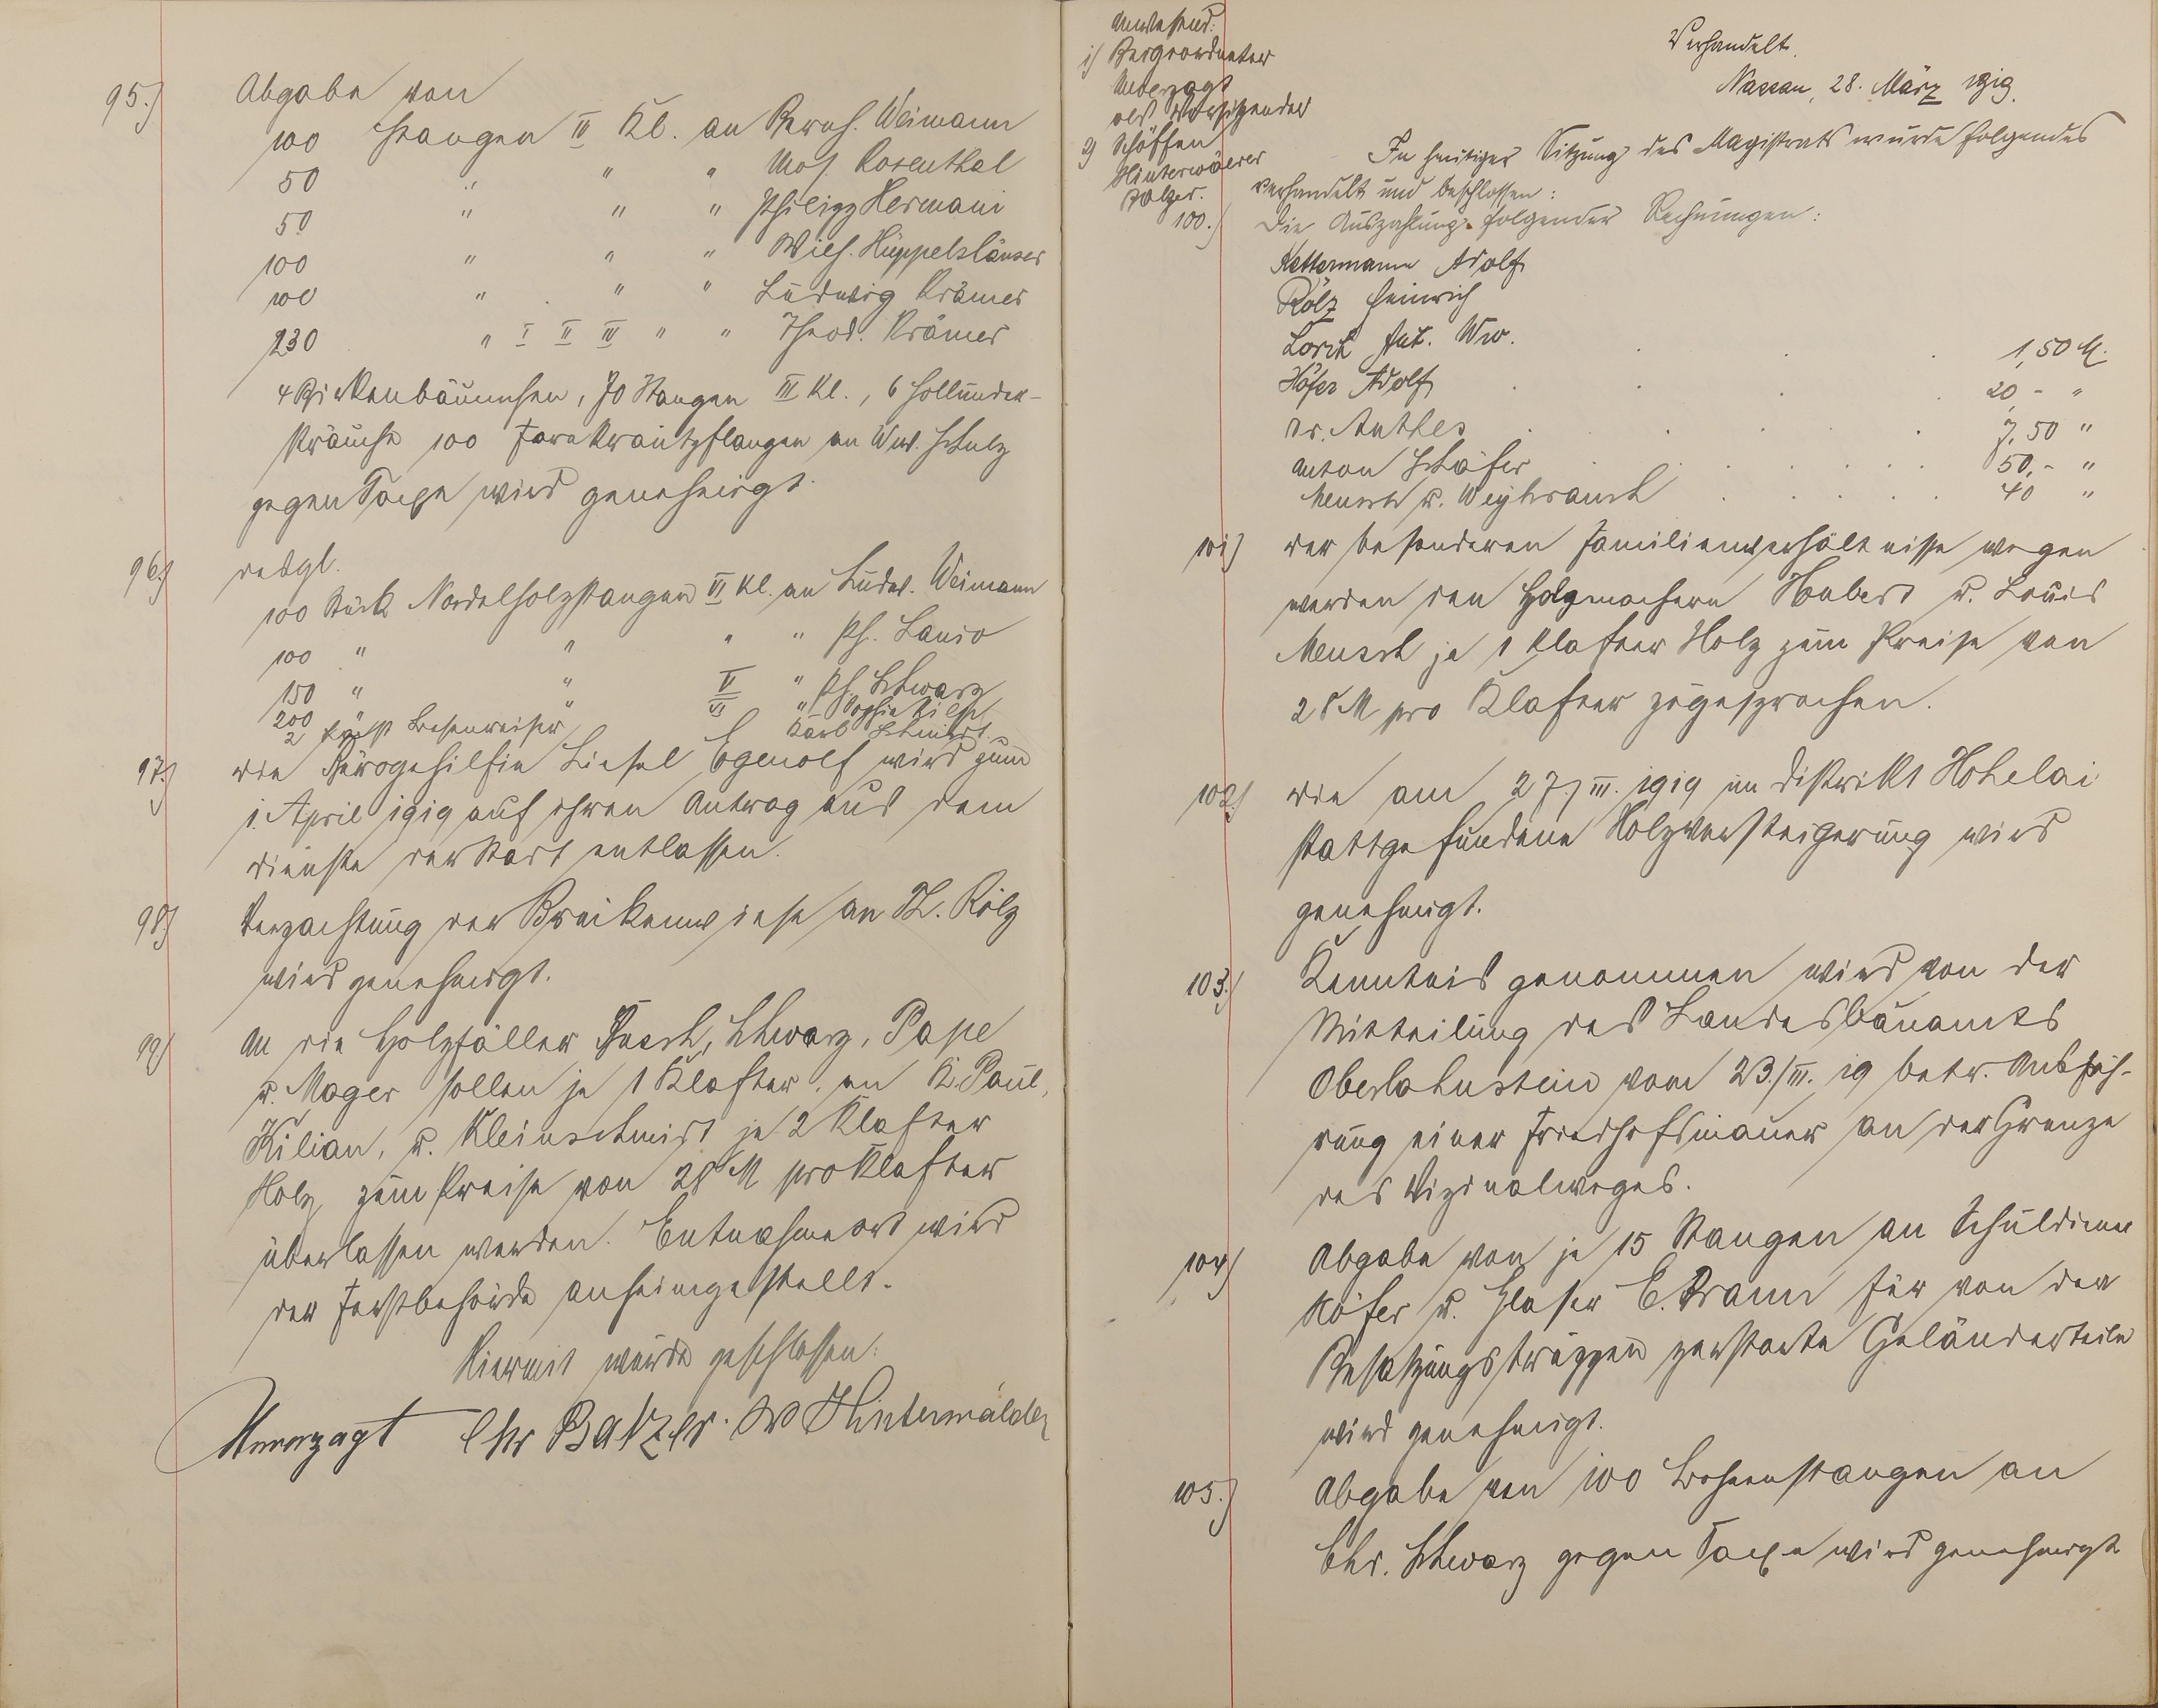 95.) Abgabe von
100 Stangen II Kl. an Bernh. Weimann
50 " " " Mos. Rosenthal
50 " " " Philipp Hermani
100 " " " Wilh. Hüppelshäuser
100 " " " Ludwig Krämer
230 " I II III " " Theod. Krämer
4 Birkenbäumchen, 70 Stangen III Kl., 6 Hollunder-
sträuche 100 pflanzen an Ww. Schulz
gegen Taxe wird genehmigt.
96.) desgl.
100 Stück Nadelholzstangen VI Kl. an Ludw. Weimann
100 " " " " Ph. Lanio
150 " " V " Ph. Schwarz
200 " " VI " Sophie
2 Besenreiser Karl Schmidt.
97.) Die Bürogehilfin Liesel Egenolf wird zum
1. April 1919 auf ihren Antrag aus dem
Dienste der Stadt entlassen.
98.) Verpachtung der wiese an H. Rölz
wird genehmigt.
99.) An die Holzfäller Busch, Schwarz, Pape
u. Mager sollen je 1 Klafter, an K. Paul,
Kilian, u. Kleinschmidt je 2 Klafter
Holz zum Preise von 28 M pro Klafter
überlassen werden. Entnahmeort wird
der Forstbehörde anheimgestellt.
Hiermit wurde geschlossen:
Unverzagt Chr Balzer. W Hinterwälder
Anwesend:
1) Beigeordneter
Unverzagt
als Vorsitzender
2) Schöffen
Hinterwälder
Balzer.
Verhandelt.
Nassau, 28. März 1919.
In heutiger Sitzung des Magistrats wurde folgendes
verhandelt und beschlossen:
100.) Die Auszahlung folgender Rechnungen:
Kettermann Adolf
Rölz Heinrich
Lorch Ant. Ww. 1,50 M.
Höfer Adolf 20,- "
Dr. Anthes 7,50 "
Anton Schäfer 50,- "
Mensch u. Weyhrauch 40 "
101) Der besonderen Familienverhältnisse wegen
werden den Holzmachern Hubert u. Louis
Mensch je 1 Klafter Holz zum Preise von
28 M pro Klafter zugesprochen.
102.) Die am 27/III. 1919 im Distrikt Hohelai
stattgefundene Holzversteigerung wird
genehmigt.
103.) Kenntnis genommen wird von der
Mitteilung des Landesbauamts
Oberlahnstein vom 23./III. 19 betr. Ausfüh-
rung einer Friedhofsmauer an der Grenze
des Vizinalweges.
104) Abgabe von je 15 Stangen an Schuldiener
Höfer u. Glaser E. Braun für von den
Besatzungstruppen zerstörte Geländerteile
wird genehmigt.
105.) Abgabe von 100 Bohnenstangen an
Chr. Schwarz gegen Taxe wird genehmigt